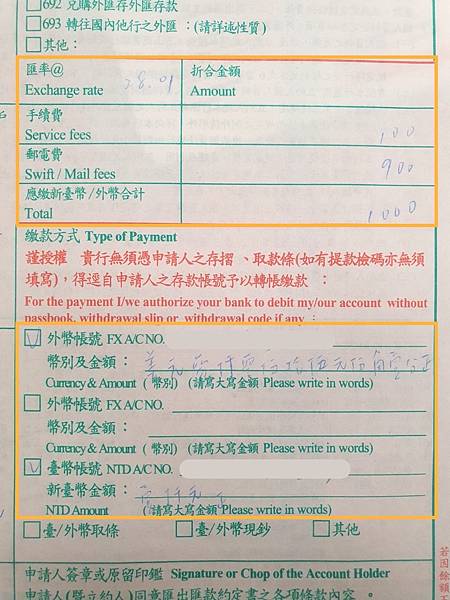 □692 兌購外匯存外匯存款
□693 轉往國內他行之外匯：(請詳述性質)
□其他：
匯率@ 折合金額
Exchange rate 28.01 Amount
手續費
Service fees 100
郵電費
Swift / Mail fees 900
應繳新臺幣/外幣合計
Total 1000
繳款方式 Type of Payment
謹授權 貴行無須憑申請人之存摺、取款條(如有提款檢碼亦無須
填寫)，得逕自申請人之存款帳號予以轉帳繳款 ：
For the payment I/we authorize your bank to debit my/our account without
passbook, withdrawal slip or withdrawal code if any :
外幣帳號 FX A/C NO.
幣別及金額： 美元
Currency & Amount (幣別) (請寫大寫金額 Please write in words)
□外幣帳號 FX A/C NO.
幣別及金額：
Currency & Amount (幣別) (請寫大寫金額 Please write in words)
臺幣帳號 NTD A/C NO.
新臺幣金額： 壹仟元正
NTD Amount (請寫大寫金額 Please write in words)
□臺/外幣取條 □臺/外幣現鈔 □其他
申請人簽章或原留印鑑 Signature or Chop of the Account Holder
申請人(暨立約人)同意匯出匯款約定書之各項條款內容。
若因餘額不